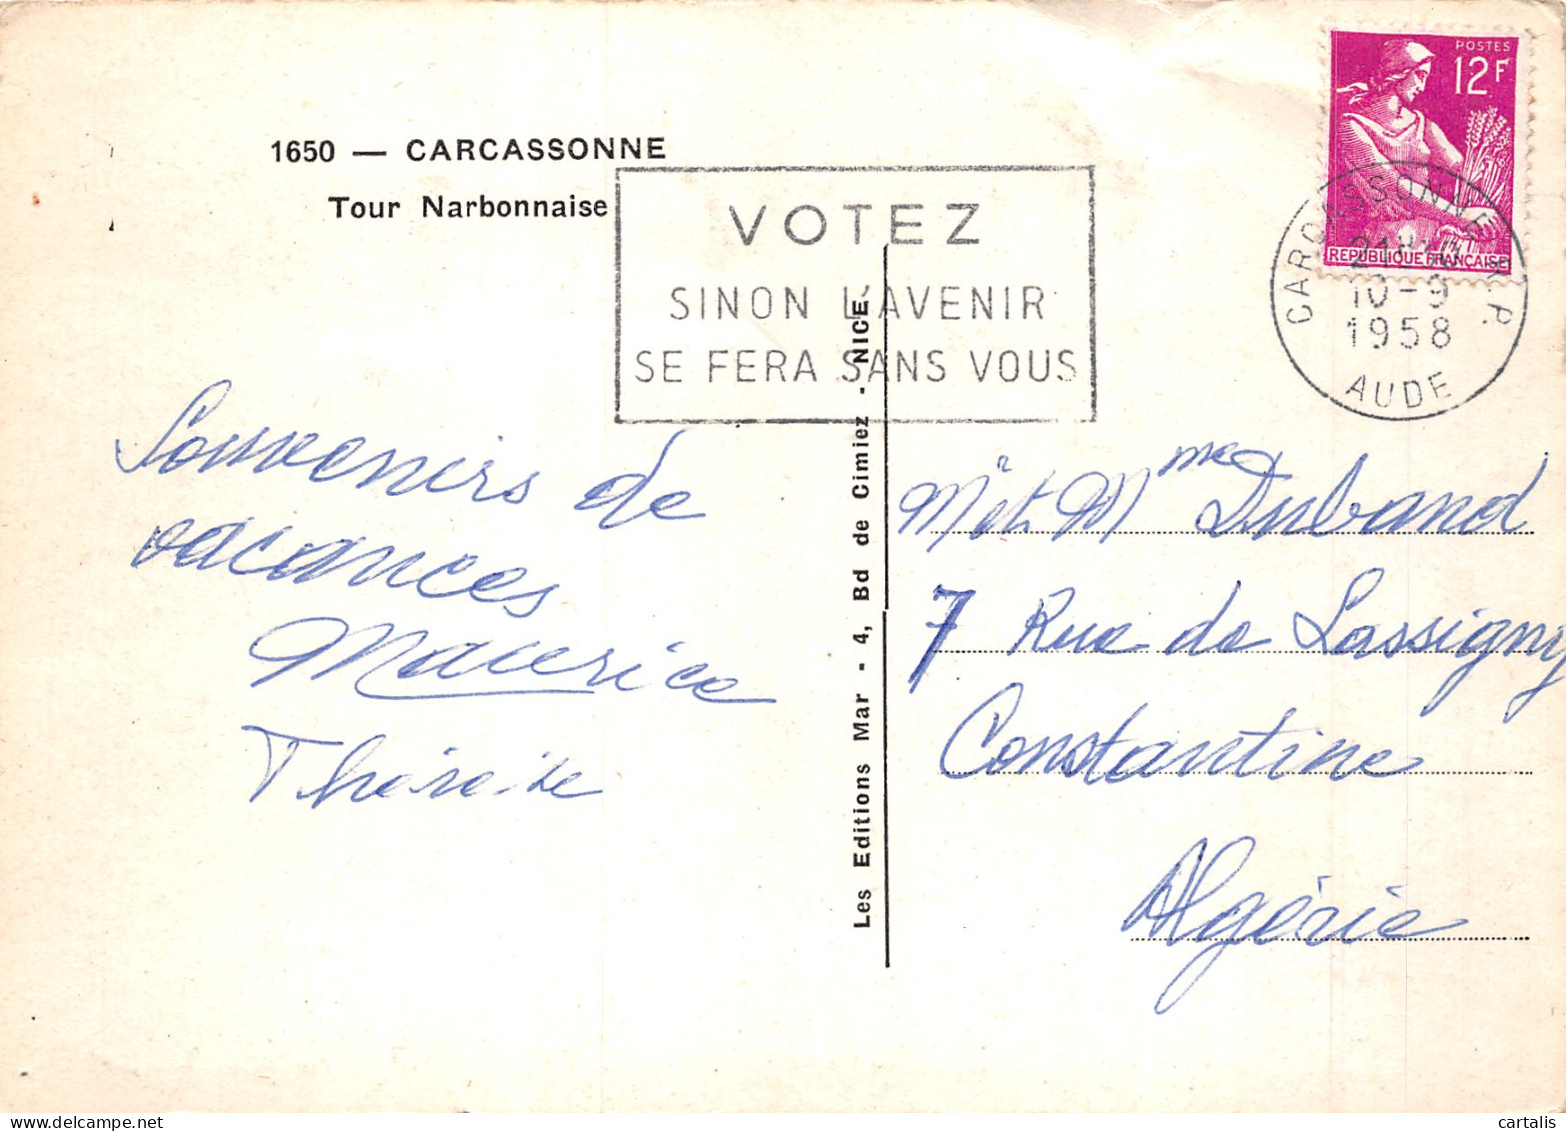 1650 — CARCASSONNE
Tour Narbonnaise
VOTEZ
SINON L'AVENIR
SE FERA SANS VOUS
POSTES
12F
REPUBLIQUE FRANÇAISE
CARCASSONNE R.P.
10-9
1958
AUDE
Souvenirs de
vacances
Maurice
Thérèse
Les Editions Mar - 4, Bd de Cimiez - NICE
Mr et Mme Duband
7 Rue de Lassigny
Constantine
Algérie
delcampe.net
cartalis